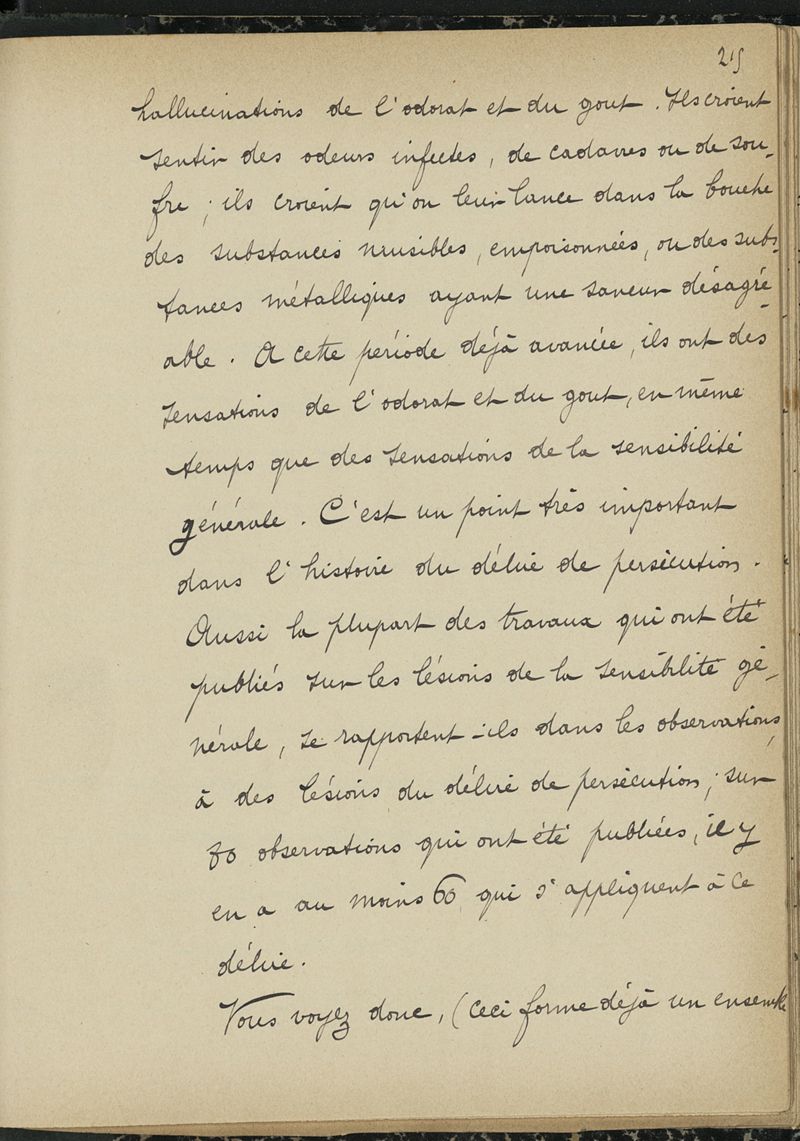 215
hallucinations de l'odorat et du gout. Ils croient
sentir des odeurs infectes, de cadavres ou de sou-
fre ; ils croient qu'on leur lance dans la bouche
des substances nuisibles, empoisonnées, ou des subs-
tances métalliques ayant une saveur désagré-
able. A cette période déjà avancée, ils ont des
sensations de l'odorat et du gout, en même
temps que des sensations de la sensibilité
générale. C'est un point très important
dans l'histoire du délire de persécution.
Aussi la plupart des travaux qui ont été
publiés sur les lésions de la sensibilité gé-
nérale, se rapportent-ils dans les observations,
à des lésions du délire de persécution ; sur
80 observations qui ont été publiées, il y
en a au moins 60 qui s'appliquent à ce
délire.
Vous voyez donc, (ceci forme déjà un ensemble